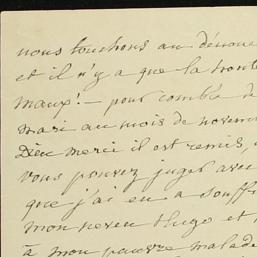 nous touchons au dénoue
et il n'y a que la
maux! – pour comble d
mari au mois de novem
Dieu merci il est remis,
vous pouvez juger avec
que j'ai eu a souffr
mon neveu Hugo et
à mon pauvre malad